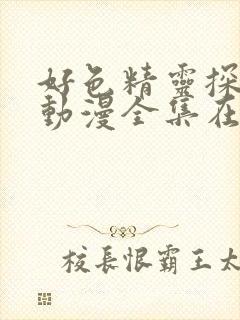 好色精靈探
動漫全集在
校長恨霸王太